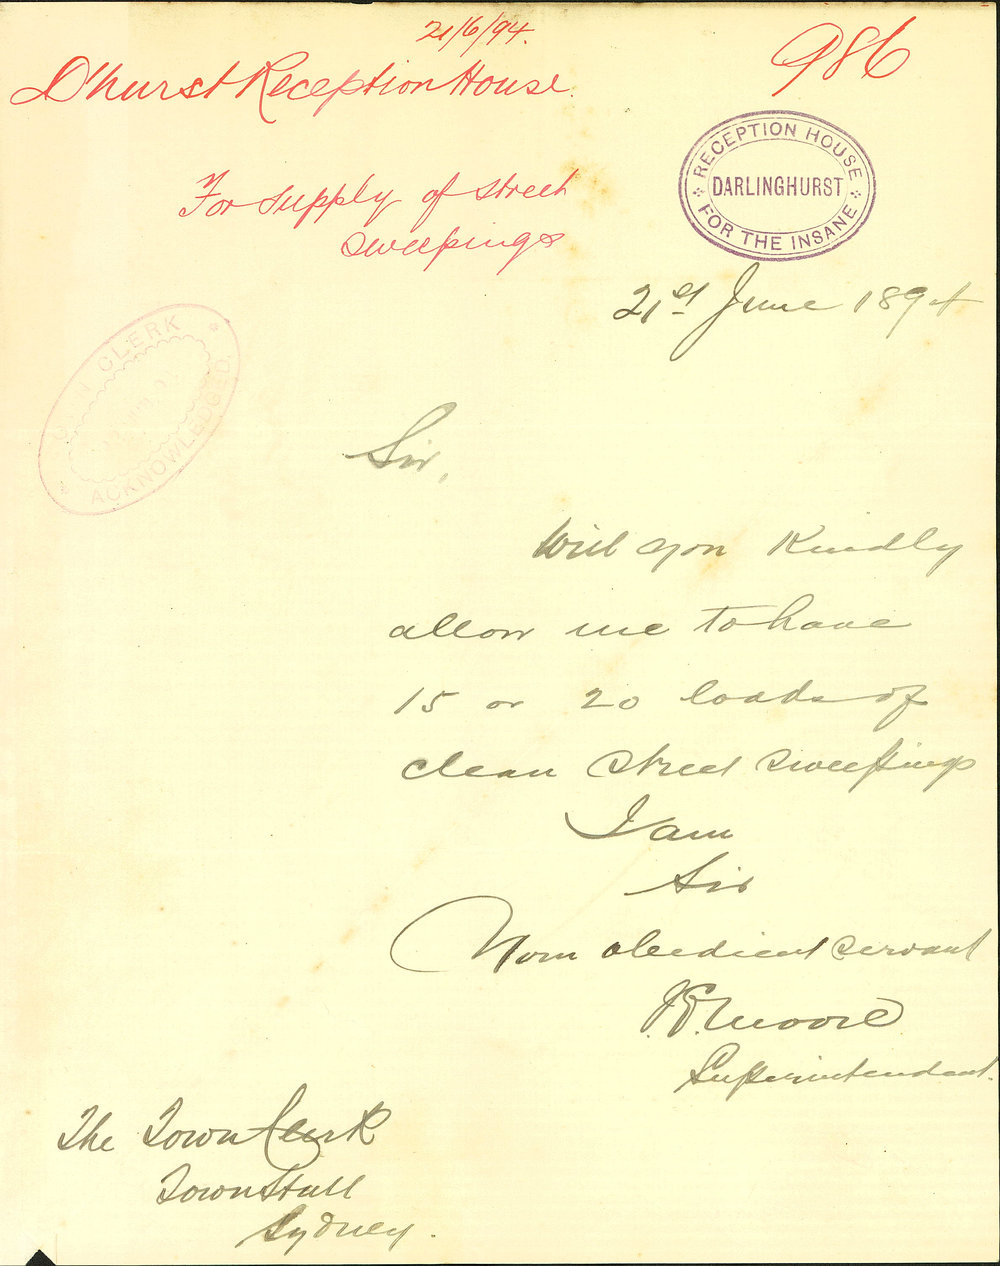 21/6/94.
986
D'hurst Reception House.
RECEPTION HOUSE
DARLINGHURST
FOR THE INSANE
For supply of street
sweepings
21st June 1894
CLERK
ACKNOWLEDGED.
Sir,
Will you kindly
allow me to have
15 or 20 loads of
clean street sweepings
I am
Sir
Your obedient servant
Moore
Superintendent.
The Town Clerk
Town Hall
Sydney.